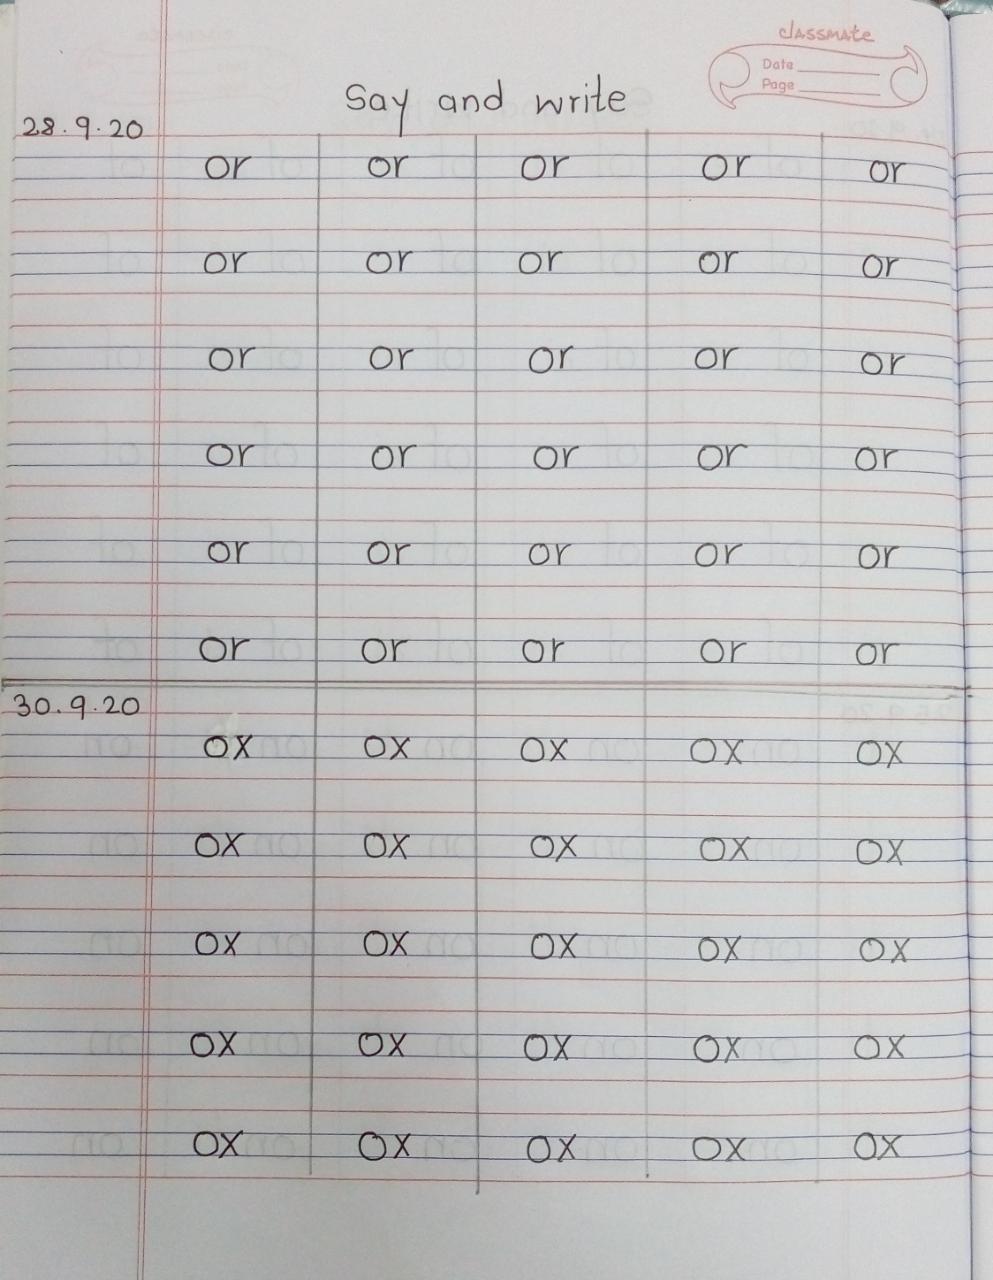 classmate
Date
Page
Say and write
28.9.20
or or or or or
or or or or or
or or or or or
or or or or or
or or or or or
or or or or or
30.9.20
ox ox ox ox ox
ox ox ox ox ox
ox ox ox ox ox
ox ox ox ox ox
ox ox ox ox ox